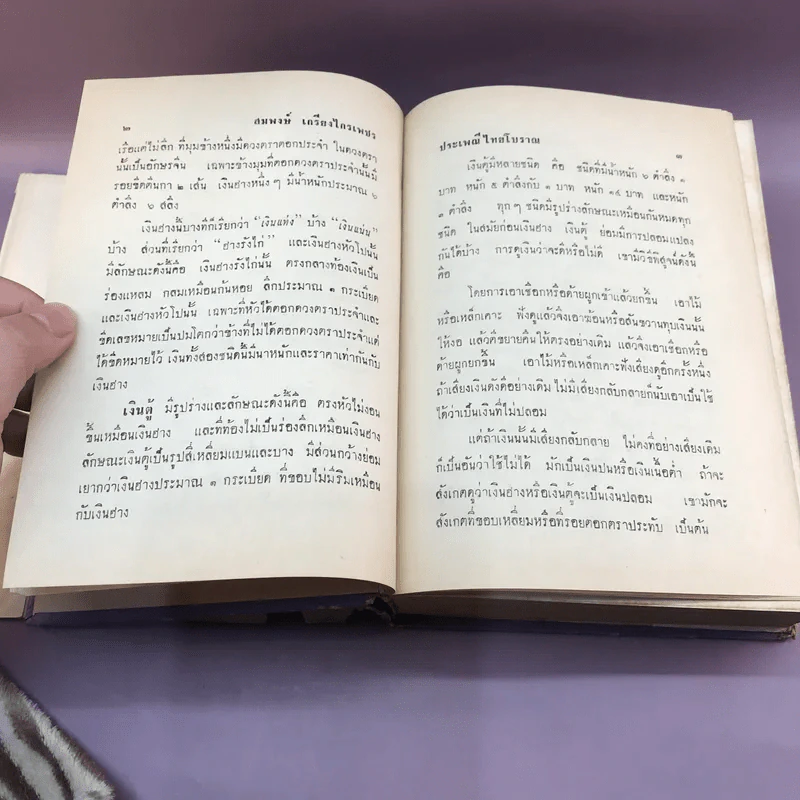 ๒ สมพงษ์ เกรียงไกรเพชร
เรือแต่ไม่ลึก ที่มุมข้างหนึ่งมีดวงตราตอกประจำ ในดวงตรา
นั้นเป็นอักษรจีน เฉพาะข้างมุมที่ตอกดวงตราประจำนั้นมี
รอยขีดตีนกา ๒ เส้น เงินฮางหนึ่ง ๆ มีน้ำหนักประมาณ ๖
ตำลึง ๖ สลึง
เงินฮางนี้บางทีก็เรียกว่า “เงินแท่ง” บ้าง “เงินแน่น”
บ้าง ส่วนที่เรียกว่า “ฮางรังไก่” และเงินฮางหัวไปนั้น
มีลักษณะดังนี้คือ เงินฮางรังไก่นั้น ตรงกลางท้องเงินเป็น
ร่องแหลม กลมเหมือนก้นหอย ลึกประมาณ ๑ กระเบียด
และเงินฮางหัวไปนั้น เฉพาะที่หัวได้ตอกดวงตราประจำและ
ขีดเลขหมายเป็นปมโตกว่าข้างที่ไม่ได้ตอกดวงตราประจำแต่
ได้ขีดหมายไว้ เงินทั้งสองชนิดนี้มีน้ำหนักและราคาเท่ากันกับ
เงินฮาง
เงินตู้ มีรูปร่างและลักษณะดังนี้คือ ตรงหัวไม่งอน
ขึ้นเหมือนเงินฮาง และที่ท้องไม่เป็นร่องลึกเหมือนเงินฮาง
ลักษณะเงินตู้เป็นรูปสี่เหลี่ยมแบนและบาง มีส่วนกว้างย่อม
เยากว่าเงินฮางประมาณ ๑ กระเบียด ที่ขอบไม่มีริมเหมือน
กับเงินฮาง
ประเพณีไทยโบราณ ๓
เงินตู้มีหลายชนิด คือ ชนิดที่มีน้ำหนัก ๖ ตำลึง ๑
บาท หนัก ๕ ตำลึงกับ ๑ บาท หนัก ๑๕ บาท และหนัก
๓ ตำลึง ทุก ๆ ชนิดมีรูปร่างลักษณะเหมือนกันหมดทุก
ชนิด ในสมัยก่อนเงินฮาง เงินตู้ ย่อมมีการปลอมแปลง
กันได้บ้าง การดูเงินว่าจะดีหรือไม่ดี เขามีวิธีพิสูจน์ดังนี้
คือ
โดยการเอาเชือกหรือด้ายผูกเข้าแล้วยกขึ้น เอาไม้
หรือเหล็กเคาะ ฟังดูแล้วจึงเอาฆ้อนหรือสันขวานทุบเงินนั้น
ให้งอ แล้วตีขยายคืนให้ตรงอย่างเดิม แล้วจึงเอาเชือกหรือ
ด้ายผูกยกขึ้น เอาไม้หรือเหล็กเคาะฟังเสียงดูอีกครั้งหนึ่ง
ถ้าเสียงเงินดังดีอย่างเดิม ไม่มีเสียงกลับกลายก็นับเอาเป็นใช้
ได้ว่าเป็นเงินที่ไม่ปลอม
แต่ถ้าเงินนั้นมีเสียงกลับกลาย ไม่คงที่อย่างเสียงเดิม
ก็เป็นอันว่าใช้ไม่ได้ มักเป็นเงินปนหรือเงินเนื้อต่ำ ถ้าจะ
สังเกตดูว่าเงินฮางหรือเงินตู้จะเป็นเงินปลอม เขามักจะ
สังเกตที่ขอบเหลี่ยมหรือที่รอยตอกตราประทับ เป็นต้น